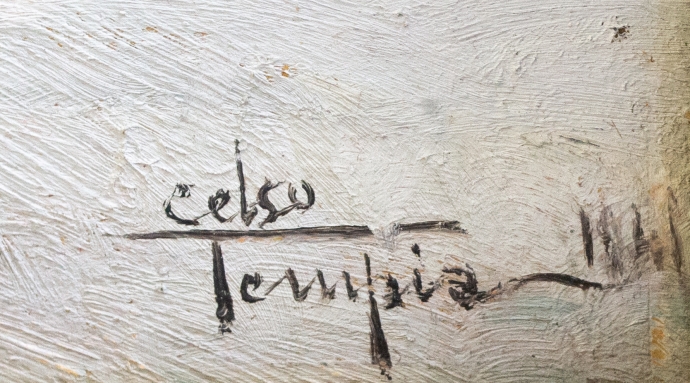 celso
Tempia